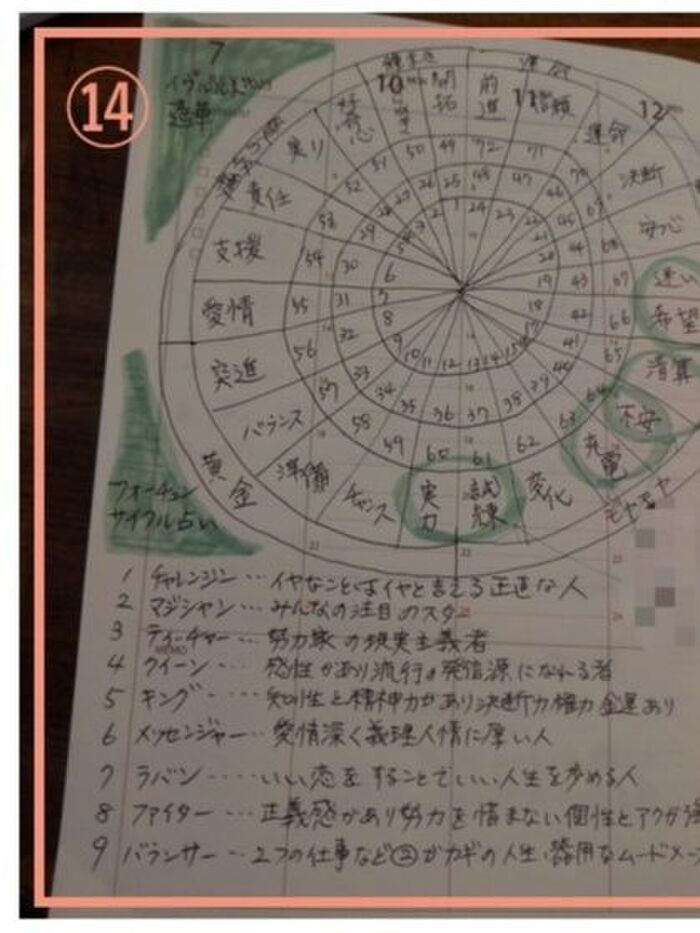 14
7
10
11
12
フォーチュン
サイクル占い
運命
前進
開拓
信頼
運命
決断
安心
迷い
希望
清算
不安
充電
モヤモヤ
変化
試練
実力
チャンス
準備
黄金
バランス
突進
愛情
支援
責任
実り
72 71 70 69 68 67 66 65 64 63 62 61 60 59 58 57 56 55 54 53 52 51 50 49
48 47 46 45 44 43 42 41 40 39 38 37 36 35 34 33 32 31 30 29 28 27 26 25
24 23 22 21 20 19 18 17 16 15 14 13 12 11 10 9 8 7 6 5 4 3 2 1
22
22
23
24
MEMO
1 チャレンジン…イヤなことはイヤと言える正直な人
2 マジシャン…みんなの注目のスター
3 ティーチャー…努力家の現実主義者
4 クイーン…感性があり流行の発信源になれる者
5 キング…知性と精神力があり決断力権力金運あり
6 メッセンジャー…愛情深く義理人情に厚い人
7 ラバン…いい恋をすることでいい人生を歩める人
8 ファイター…正義感があり努力を惜まない個性とアクが強
9 バランサー…2つの仕事など②がカギの人生・器用なムードメー